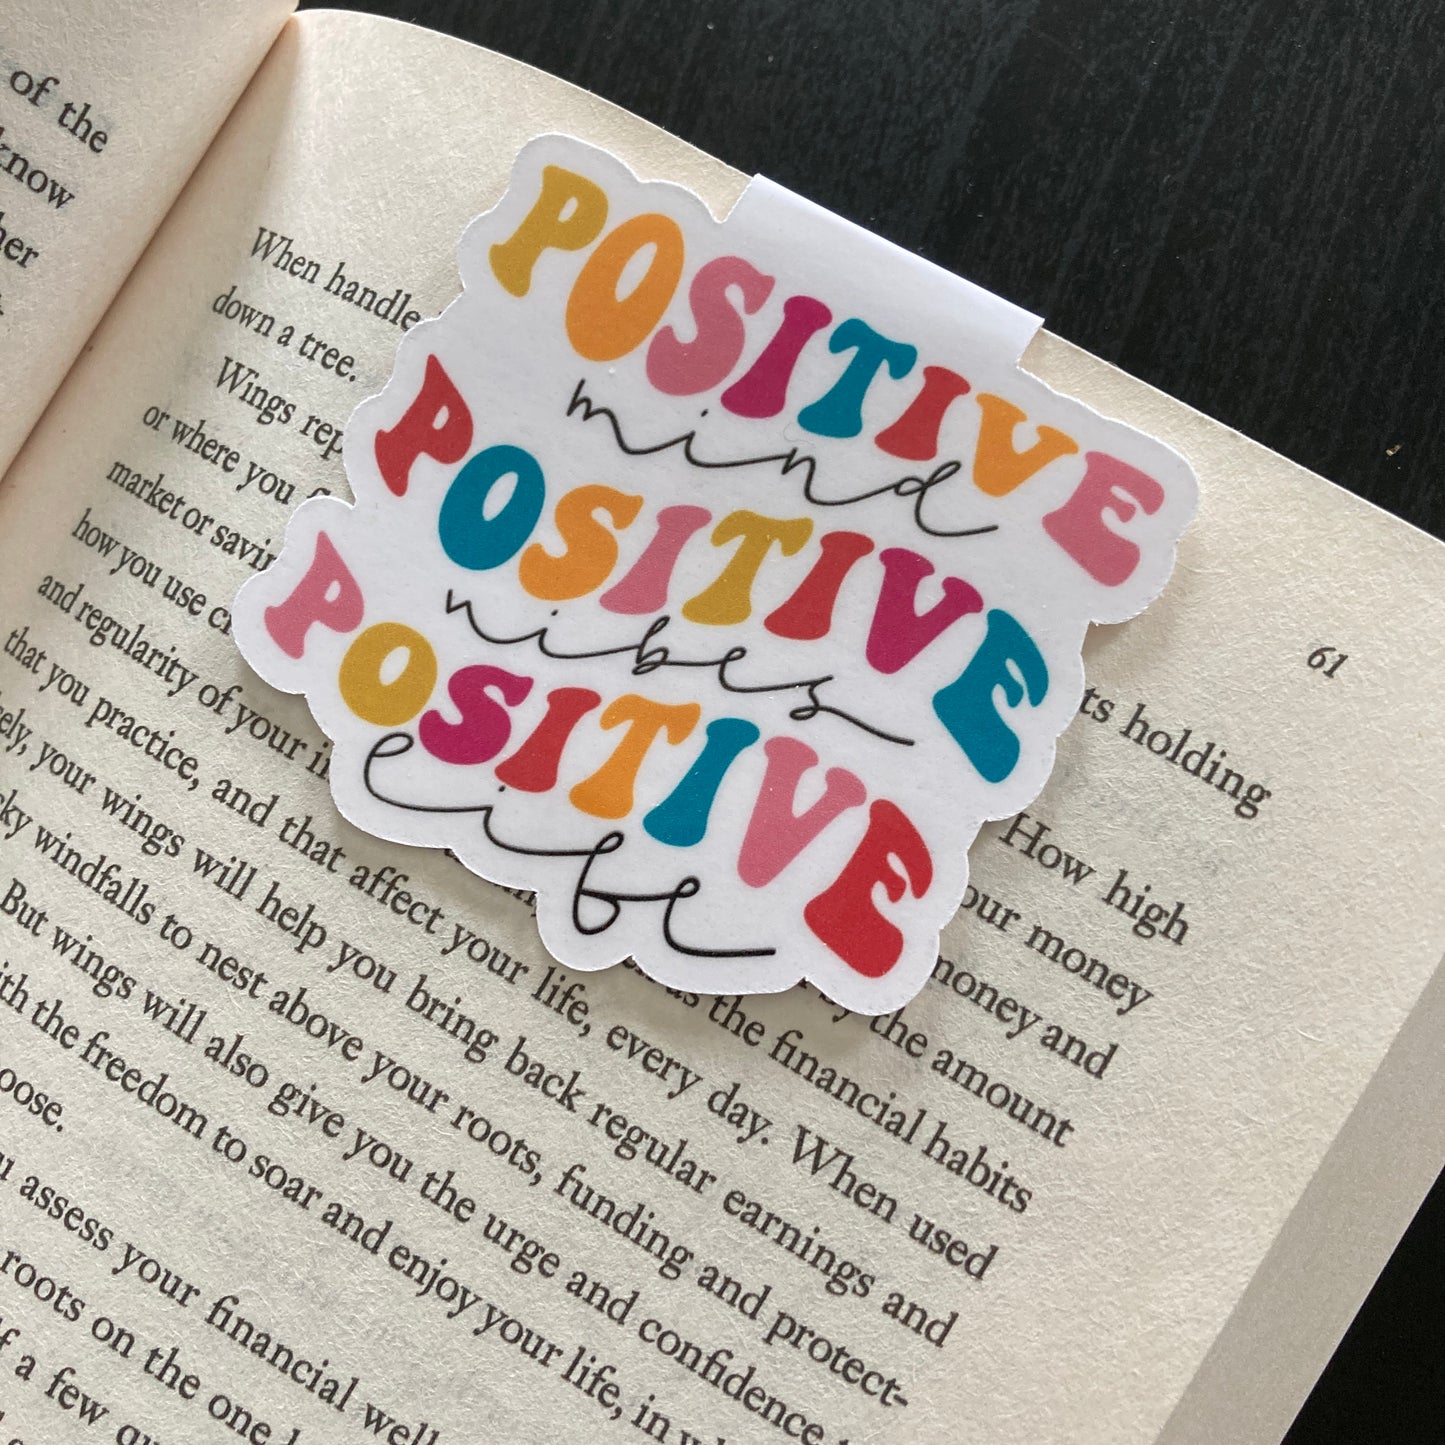 of the
know
POSITIVE
mind
POSITIVE
vibes
POSITIVE
life
61
When handle ts holding
down a tree.
Wings How high
or where you our money
market or money and
how you use by the amount
and regularity of your as the financial habits
that you practice, and that affect your life, every day. When used
your wings will help you bring back regular earnings and
windfalls to nest above your roots, funding and protect-
But wings will also give you the urge and confidence
the freedom to soar and enjoy your life, in
assess your financial well
roots on the one
a few